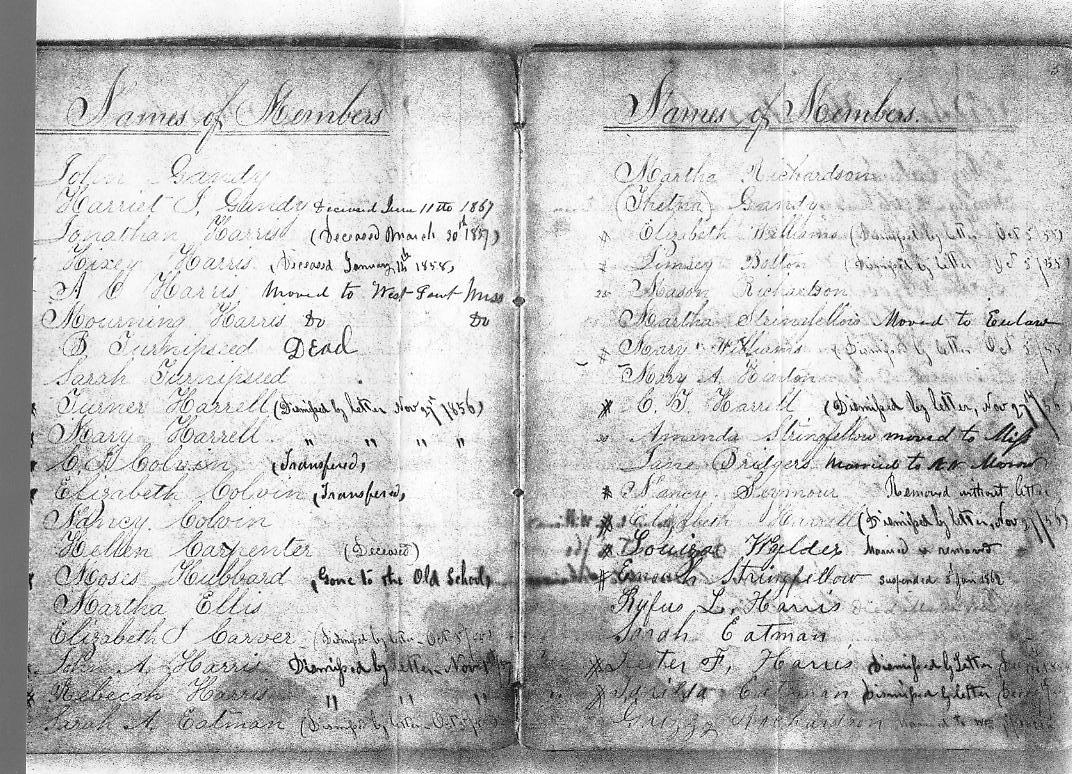 Names of Members
John Gandy
Harriet J. Gandy Deceased June 11th 1867
Jonathan Harris (Deceased March 30th 1857)
Hixey Harris (Deceased January 1858)
A C Harris Moved to West Miss
Mourning Harris Do Do
B. Turnipseed Dead
Sarah Turnipseed
Turner Harrell (Dismissed by letter Nov 27th 1856)
Mary Harrell " " " "
Colvin (Transfered)
Elizabeth Colvin (Transfered)
Nancy Colvin
Hellen Carpenter (Deceased)
Moses Hubbard (Gone to the Old School)
Martha Ellis
Elizabeth J Carver (Dismissed by letter Oct
John A Harris Dismissed by letter Nov
Rebecah Harris " " "
Sarah A Eatman (Dismissed by letter Oct
5
Names of Members.
Martha Richardson
Gandy
Elizabeth Williams (Dismissed by letter Oct 5
Bolton (Dismissed by letter Oct 5
Mason Richardson
Martha Stringfellow Moved to Eutaw
Mary Williams (Dismissed by letter Oct 5
Mary A Horton
C. J. Harrell (Dismissed by letter, Nov 27th
Amanda Stringfellow moved to Miss
Jane Bridgers Married to
Nancy Seymour Removed without letter
Elizabeth Harrell (Dismissed by letter, Nov 27
Louiza Wylder Married & removed
Enoch Stringfellow suspended 5 Jan 1862
Ryfus L. Harris
Sarah Eatman
Lester F. Harris Dismissed by Letter
Eatman Dismissed by letter
Richardson Married to